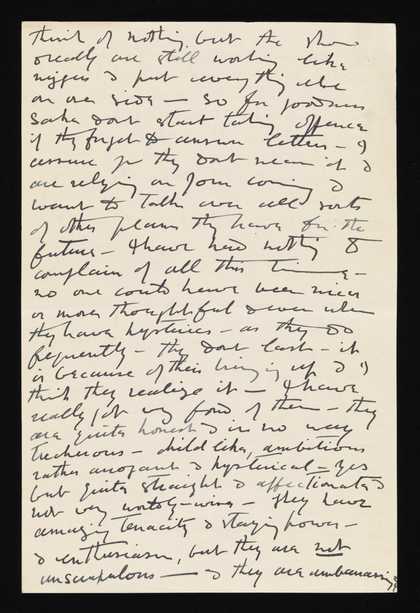 think of nothing but the show
really are still working like
niggers & put everything else
on one side — so for goodness
sake dont start taking offence
if they forget to answer letters — I
assure you they dont mean it &
are relying on your coming &
want to talk over all sorts
of other plans they have for the
future — I have had nothing to
complain of all this time —
no one could have been nicer
or more thoughtful & even when
they have hysterics — as they do
frequently — they dont last — it
is because of their bringing up & I
think they realize it — I have
really got very fond of them — they
are quite honest & in no way
treacherous — childlike, ambitious
rather arrogant & hysterical — yes
but quite straight & affectionate &
not very worldly-wise — they have
amazing tenacity & staying power —
& enthusiasm, but they are not
unscrupulous — & they are embarrassingly